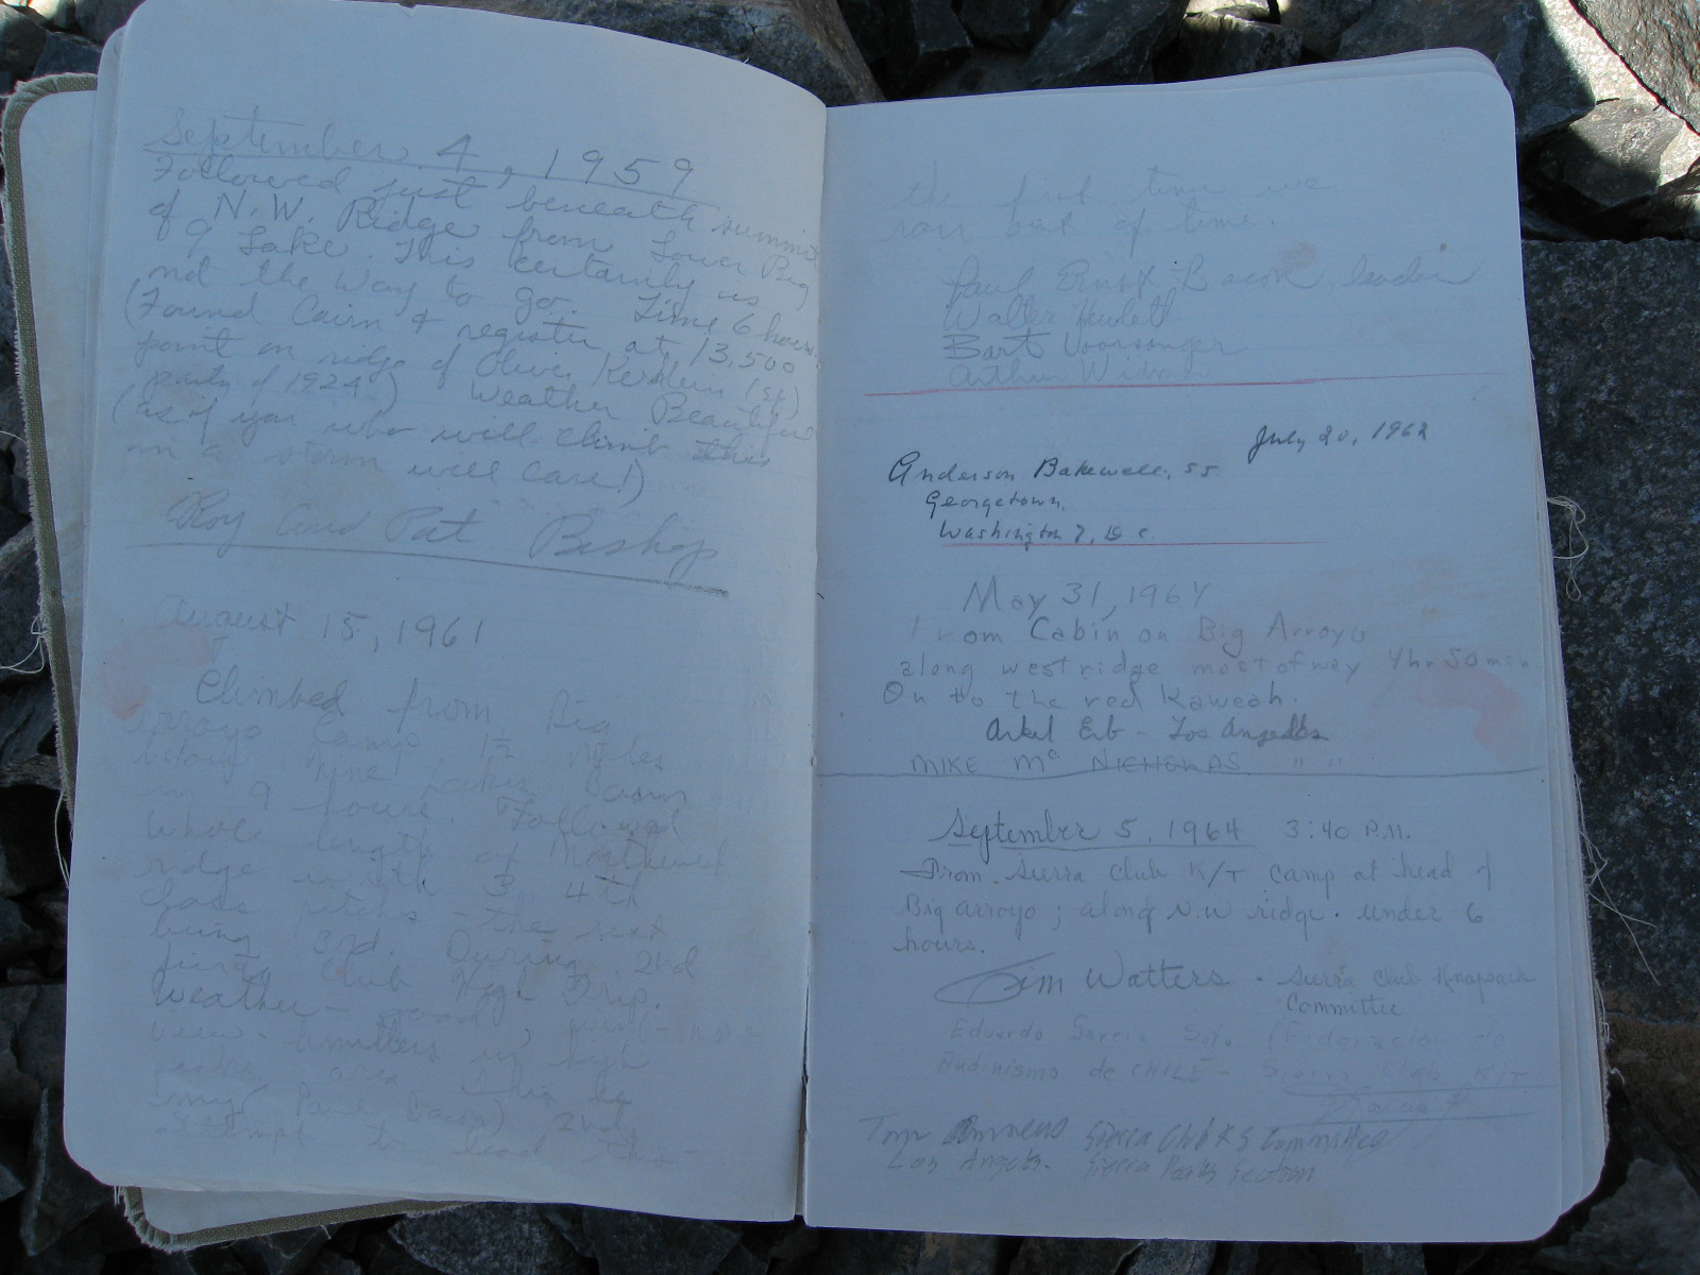 September 4, 1959
Followed just beneath summit
of N.W. Ridge from Lower Big
9 Lake. This certainly is
not the way to go. Time 6 hours.
(Found Cairn & register at 13,500
point on ridge of Oliver Kehrlein 1st
party of 1924.) Weather Beautiful
(as if you who will climb this
in a storm will care!)
Roy and Pat Bishop
August 15, 1961
Climbed from Big
Arroyo Camp 1½ miles
below Nine Lakes Basin
in 9 hours. Followed
whole length of Northwest
ridge with 3, 4th
class pitches - the rest
being 3rd. During 2nd
Club High Trip.
Weather - good,
view - limitless in high
peaks area
my Paul Bacon) 2nd
attempt to lead this
the first time we
ran out of time.
Paul Ernst Bacon, leader
Walter Hewlett
Bart Voorsanger
Arthur
July 20, 1962
Anderson Bakewell, SJ.
Georgetown,
Washington 7, D C.
May 31, 1964
From Cabin on Big Arroyo
along west ridge most of way 4 hr 50 min
On to the red Kaweah.
Arkel Erb - Los Angeles
MIKE Mc NICHOLAS " "
September 5, 1964 3:40 P.M.
From Sierra Club K/T Camp at head of
Big Arroyo; along N.W ridge. under 6
hours.
Jim Watters - Sierra Club Knapsack
Committee
Eduardo Garcia Soto (Federacion de
Andinismo de CHILE - Sierra Club K/T
Tom Sierra Club K S Committee
Los Angeles. Sierra Peaks Section